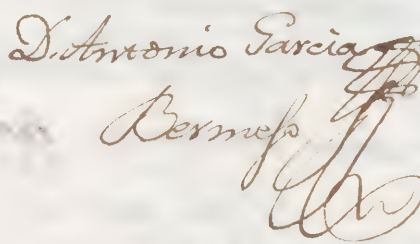 D. Antonio Garcia
Bermejo